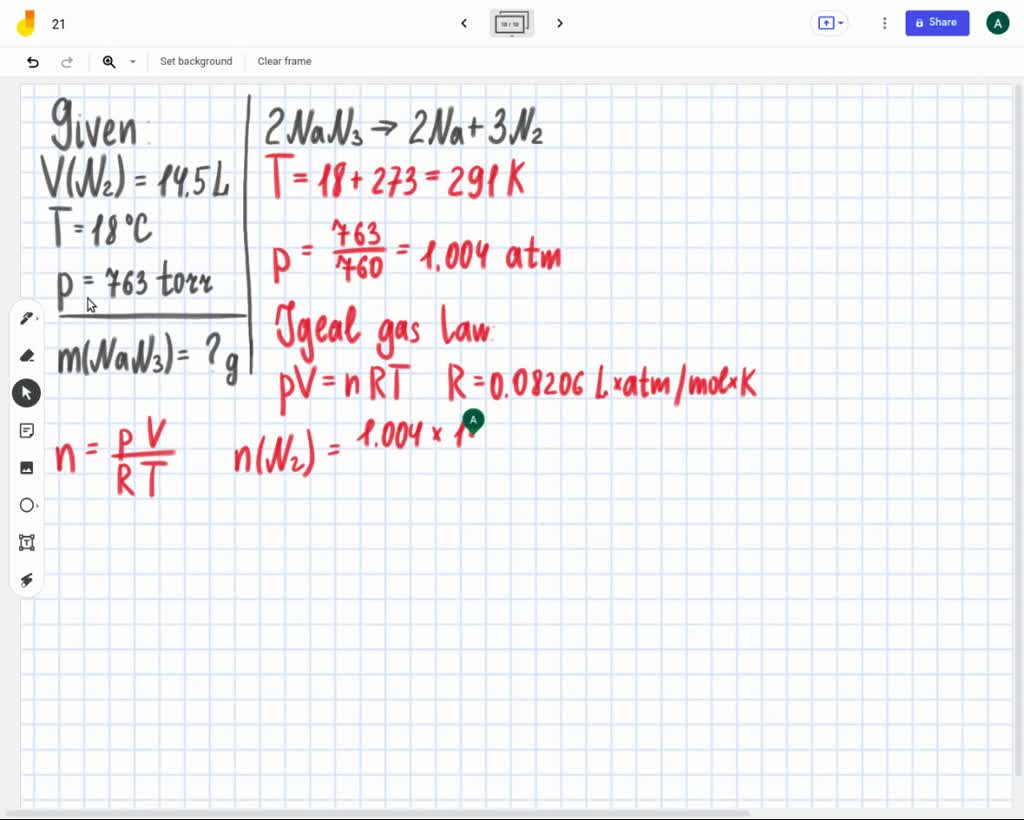 21
10 / 10
Share
A
Set background
Clear frame
Given:
V(N₂) = 14.5 L
T = 18 °C
p = 763 torr
m(NaN₃) = ? g
2NaN₃ → 2Na + 3N₂
T = 18 + 273 = 291 K
p = 763/760 = 1.004 atm
Igeal gas law:
pV = nRT R = 0.08206 L×atm/mol×K
n = pV/RT n(N₂) = 1.004 × 1
A